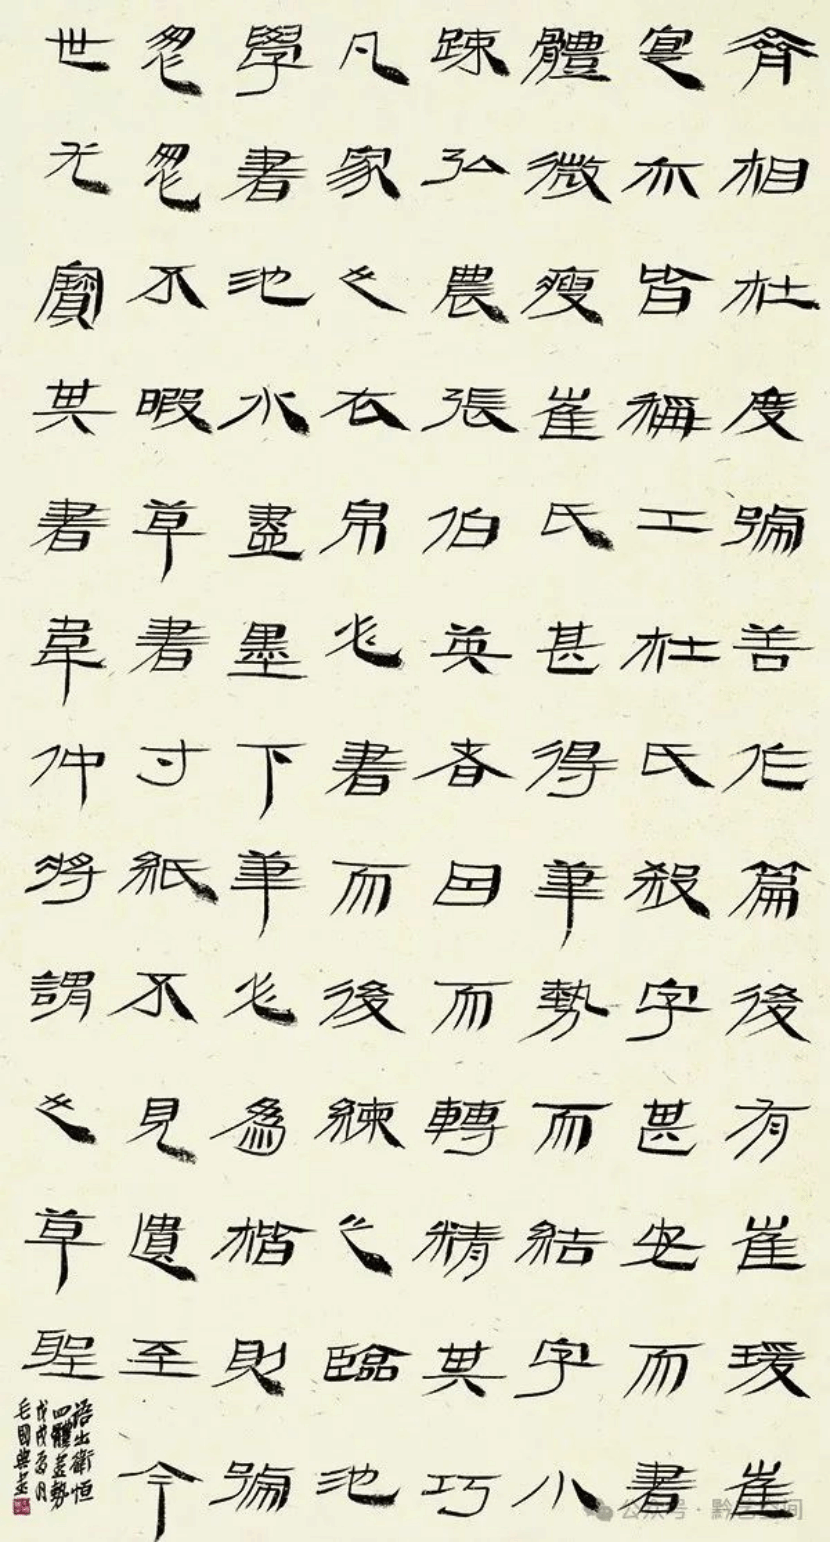 齊相杜度號善作篇後有崔瑗崔
寔亦皆稱工杜氏殺字甚安而書
體微瘦崔氏甚得筆勢而結字小
踈弘農張伯英者因而轉精其巧
凡家之衣帛必書而後練之臨池
學書池水盡墨下筆必為楷則號
怱怱不暇草書寸紙不見遺至今
世尤寶其書韋仲將謂之草聖
語出衛恒
四體書勢
戊戌夏月
毛國典書
公众号·黔艺空间